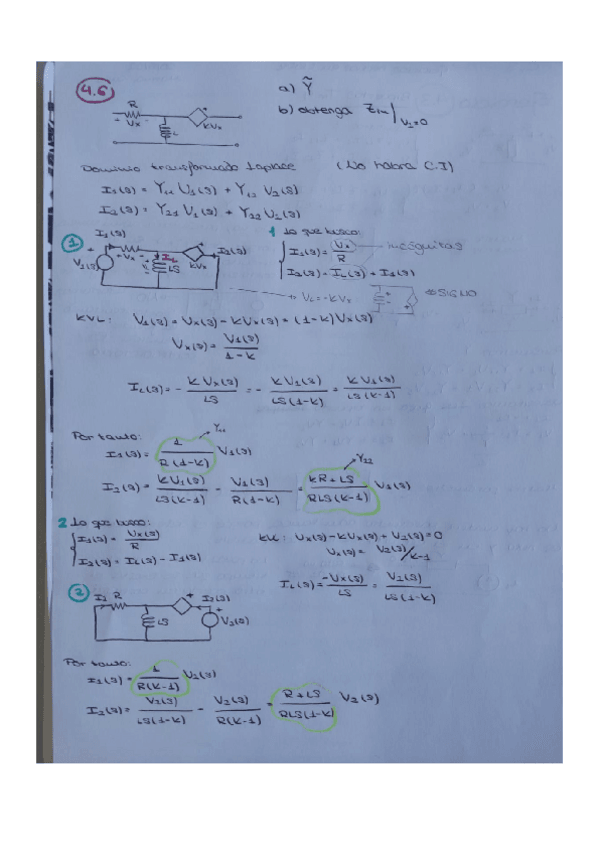 4.6
a) Ỹ
b) obtenga Zin|V2=0
R
+ Vx -
L
kVx
Dominio transformado Laplace (No habrá C.I)
I1(s) = Y11 V1(s) + Y12 V2(s)
I2(s) = Y21 V1(s) + Y22 V2(s)
1
I1(s)
V1(s)
+ Vx -
IL
LS
kVx
I2(s)
1 Lo que busco:
I1(s) = Vx/R
incógnitas
I2(s) = IL(s) + I1(s)
→ VL = -kVx
KVL: V1(s) = Vx(s) - kVx(s) = (1-k)Vx(s)
Vx(s) = V1(s)/1-k
IL(s) = - kVx(s)/LS = - kV1(s)/LS(1-k) = kV1(s)/LS(k-1)
Por tanto:
Y11
I1(s) = 1/R(1-k) V1(s)
Y22
I2(s) = kV1(s)/LS(k-1) - V1(s)/R(1-k) = kR+LS/RLS(k-1) V1(s)
2 Lo que busco:
I1(s) = Vx(s)/R
I2(s) = IL(s) - I1(s)
KVL: Vx(s) - kVx(s) + V2(s) = 0
Vx(s) = V2(s)/k-1
IL(s) = -Vx(s)/LS = V2(s)/LS(1-k)
2
I1 R
LS
I2(s)
V2(s)
Por tanto:
I1(s) = 1/R(k-1) V2(s)
I2(s) = V2(s)/LS(1-k) - V2(s)/R(k-1) = R+LS/RLS(1-k) V2(s)